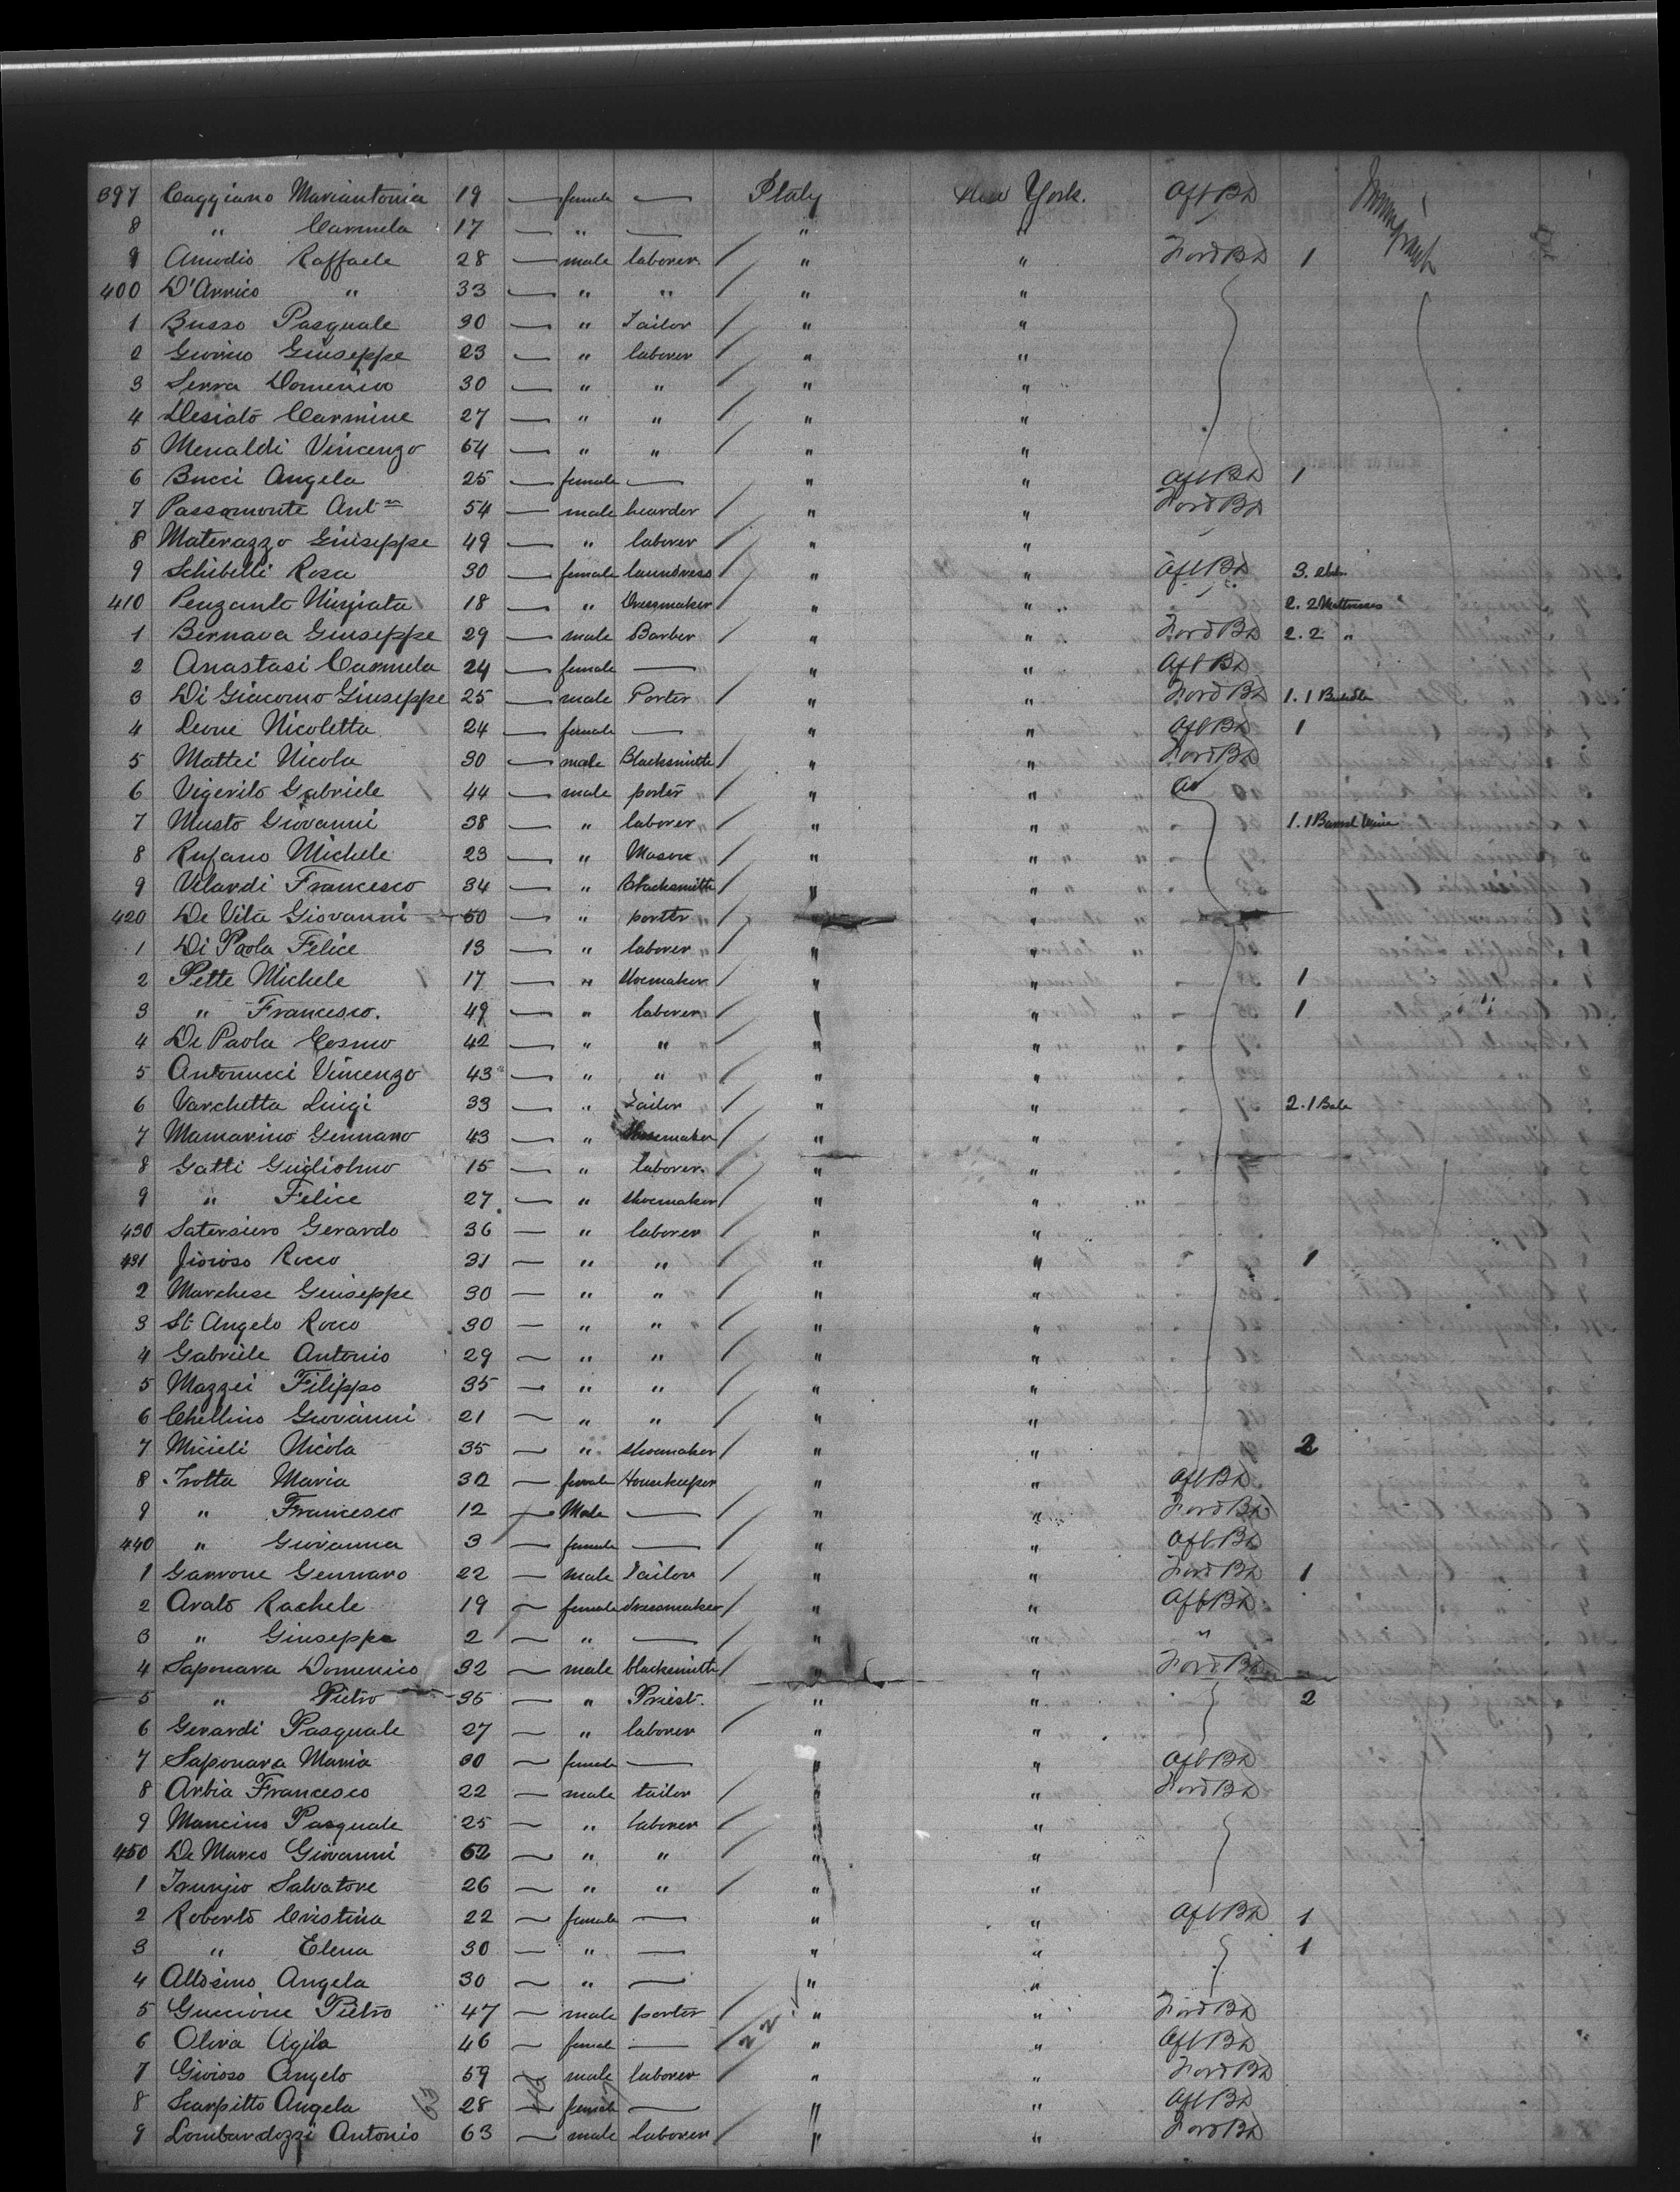 397 Caggiano Mariantonia 19 — female — Italy New York. Aft BD
8 " Carmela 17 — " — " "
9 Amodio Raffaele 28 — male laborer / " " Ford BD 1
400 D'Arrico " 33 — " " / " "
1 Busso Pasquale 30 — " Tailor / " "
2 Giuseppe 23 — " laborer / " "
3 Serra Domenico 30 — " " / " "
4 Desiato Carmine 27 — " " / " "
5 Menaldi Vincenzo 54 — " " / " "
6 Bucci Angela 25 — female — " " Aft BD 1
7 Passamonte Ant 54 — male / " " Ford BD
8 Materazzo Giuseppe 49 — " laborer / " "
9 Schibelli Rosa 30 — female laundress / " " Aft BD 3.
410 18 — " Dressmaker / " " 2. 2 Mattresses
1 Bernava Giuseppe 29 — male Barber / " " Ford BD 2. 2 "
2 Anastasi Carmela 24 — female — " " Aft BD
3 Di Giacomo Giuseppe 25 — male Porter / " " Ford BD 1. 1 Bundle
4 Leone Nicoletta 24 — female — " " Aft BD 1
5 Mattei Nicola 30 — male Blacksmith / " " Ford BD
6 Vigerito Gabriele 44 — male porter / " "
7 Musto Giovanni 38 — " laborer / " " 1. 1 Barrel Wine
8 Rufano Michele 23 — " Mason / " "
9 Vilardi Francesco 34 — " Blacksmith / " "
420 De Vita Giovanni 50 — " porter / " "
1 Di Paola Felice 13 — " laborer / " "
2 Pette Michele 17 — " Shoemaker / " " 1
3 " Francesco. 49 — " laborer / " " 1
4 De Paola Cosmo 42 — " " / " "
5 Antonucci Vincenzo 43 — " " / " "
6 Varchetta Luigi 33 — " Tailor / " " 2. 1 Bale
7 Mamarino Gennaro 43 — " Shoemaker / " "
8 Gatti Gugliolmo 15 — " laborer. / " "
9 " Felice 27 — " Shoemaker / " "
430 Satersiero Gerardo 36 — " laborer / " "
431 Jioioso Rocco 31 — " " / " " 1
2 Marchese Giuseppe 30 — " " / " "
3 St Angelo Rocco 30 — " " / " "
4 Gabriele Antonio 29 — " " / " "
5 Mazzei Filippo 35 — " " / " "
6 Chellino Giovanni 21 — " " / " "
7 Micieli Nicola 35 — " shoemaker / " " 2
8 Trotta Maria 32 — female Housekeeper " " Aft BD
9 " Francesco 12 — Male — " " Ford BD
440 " Giovanna 3 — female — / " " Aft BD
1 Garrone Gennaro 22 — male Tailor / " " Ford BD 1
2 Arato Rachele 19 — female dressmaker / " " Aft BD
3 " Giuseppa 2 — " — / " " "
4 Saponara Domenico 32 — male blacksmith / " " Ford BD
5 " Pietro 35 — " Priest. " " 2
6 Gerardi Pasquale 27 — " laborer / " "
7 Saponara Maria 30 — female — " " Aft BD
8 Arbia Francesco 22 — male tailor / " " Ford BD
9 Mancino Pasquale 25 — " laborer / " "
450 De Marco Giovanni 52 — " " / " "
1 Salvatore 26 — " " / " "
2 Roberto Cristina 22 — female — " " Aft BD 1
3 " Elena 30 — " — " " 1
4 Altosino Angela 30 — " — " "
5 Guccione Pietro 47 — male porter / " " Ford BD
6 Oliva 46 — female — / 22 " " Aft BD
7 Gioioso Angelo 59 — male laborer " " Ford BD
8 Scarpitto Angela 63 28 — female — " " Aft BD
9 Lombardozzi Antonio 63 — male laborer / " " Ford BD